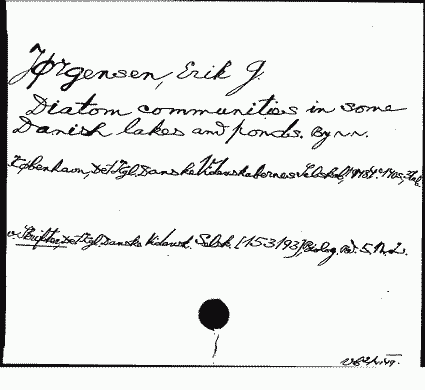 Jørgensen, Erik G.
Diatom communities in some
Danish lakes and ponds. By
København, Det Kgl. Danske Videnskabernes Selskab,
Skrifter, Det Kgl. Danske Vidensk. Selsk. [153193] Biolog. Bd. 5. N. 2.